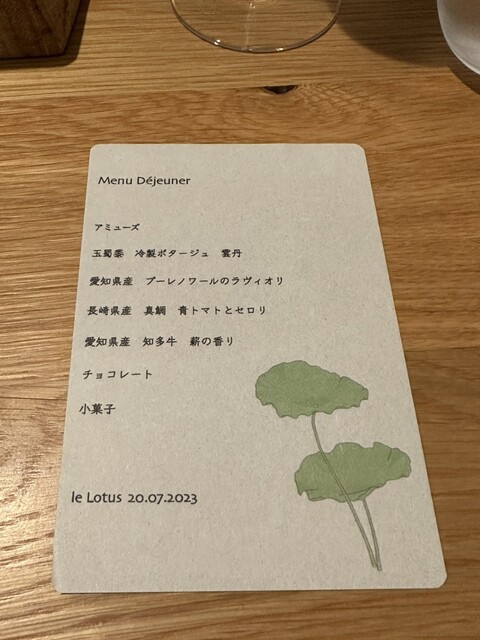 Menu Déjeuner
アミューズ
玉蜀黍　冷製ポタージュ　雲丹
愛知県産　プーレノワールのラヴィオリ
長崎県産　真鯛　青トマトとセロリ
愛知県産　知多牛　薪の香り
チョコレート
小菓子
le Lotus 20.07.2023